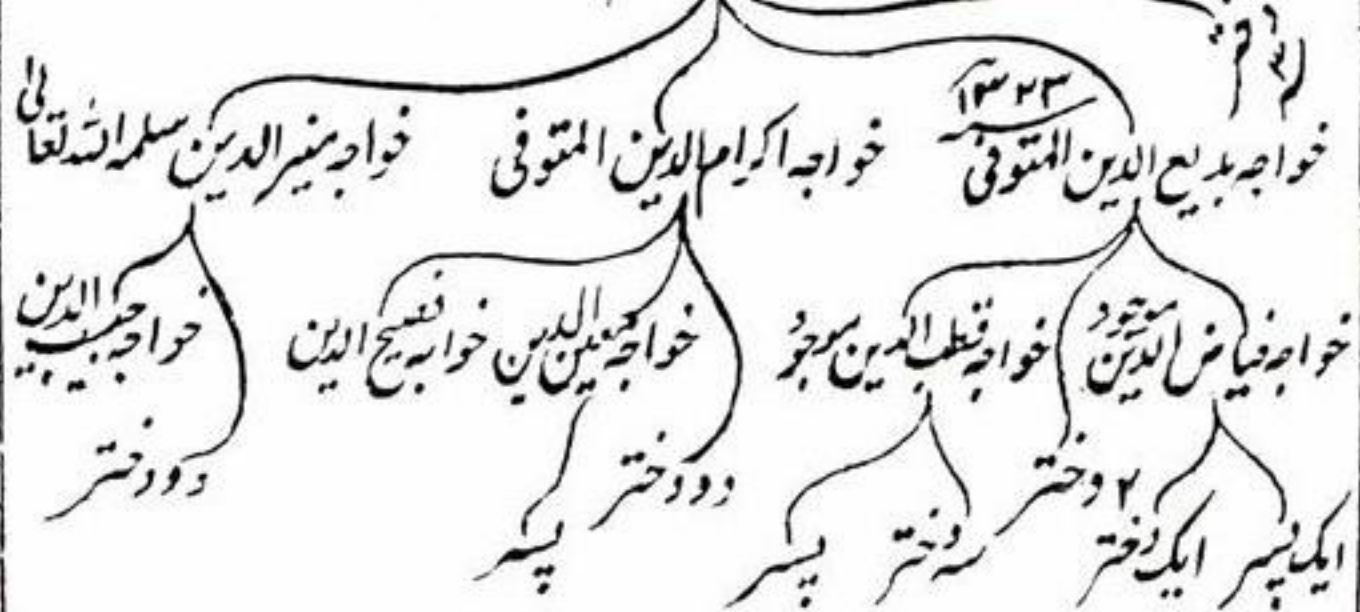 لہ دختر
خواجہ بدیع الدین المتوفی ۱۳۲۳ خواجہ اکرام الدین المتوفی خواجہ منیر الدین سلمہ اللہ تعالیٰ
خواجہ فیاض الدین موجود خواجہ قطب الدین موجود خواجہ معین الدین خواجہ فصیح الدین خواجہ حبیب الدین
۲ دختر دو دختر دو دختر
ایک پسر ایک دختر سہ دختر پسر پسر